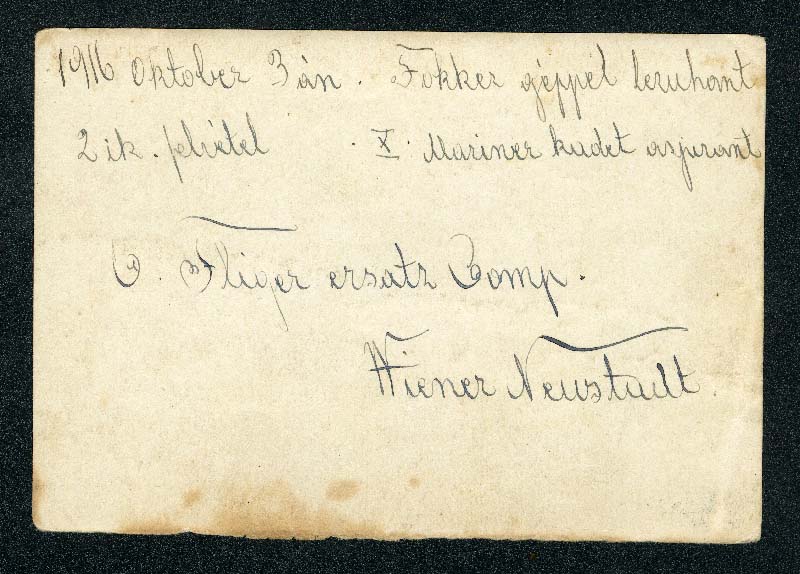 1916 Oktober 3 án. Fokker géppel lezuhant
2 ik. felvétel X. Mariner kadet aspirant
6. Fliger ersatz Comp.
Wiener Neustadt.